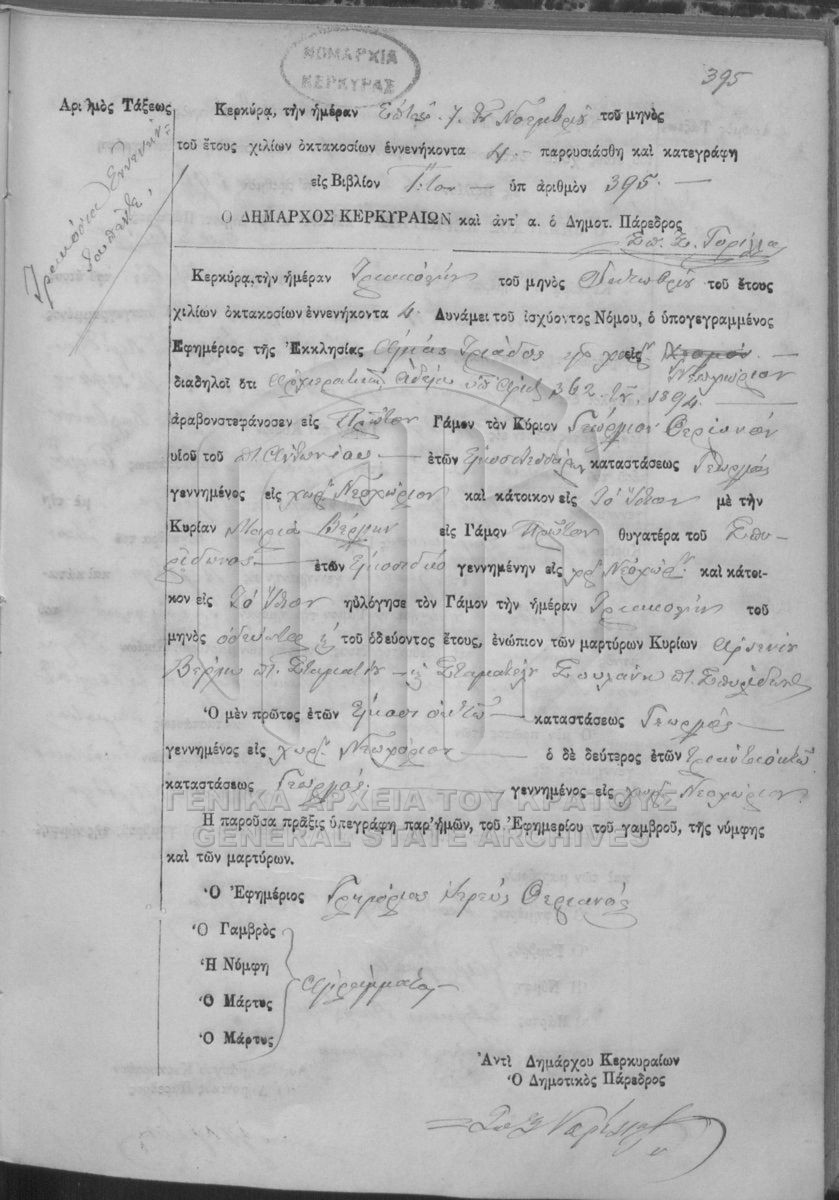 ΝΟΜΑΡΧΙΑ
ΚΕΡΚΥΡΑΣ
395
Αριθμὸς Τάξεως
Τριακόσια Ἐννενήν=
τα πέντε
Κερκύρᾳ, τὴν ἡμέραν 7 Νοεμβρίου τοῦ μηνὸς
τοῦ ἔτους χιλίων ὀκτακοσίων ἐννενήκοντα 4 παρουσιάσθη καὶ κατεγράφη
εἰς Βιβλίον ὑπ ἀριθμὸν 395.
Ο ΔΗΜΑΡΧΟΣ ΚΕΡΚΥΡΑΙΩΝ καὶ ἀντ' α. ὁ Δημοτ. Πάρεδρος
Κερκύρᾳ, τὴν ἡμέραν Τριακοστὴν τοῦ μηνὸς Ὀκτωβρίου τοῦ ἔτους
χιλίων ὀκτακοσίων ἐννενήκοντα 4. Δυνάμει τοῦ ἰσχύοντος Νόμου, ὁ ὑπογεγραμμένος
Ἐφημέριος τῆς Ἐκκλησίας Ἁγίας Τριάδος εἰς
Νεοχώριον
διαδηλοῖ ὅτι Ἀρχιερατικῇ Ἀδείᾳ ὑπ' ἀριθ. 362 1894
ἀραβονστεφάνοσεν εἰς Πρῶτον Γάμον τὸν Κύριον Γεώργιον Θεριανὸν
υἱοῦ τοῦ π. Ἀντωνίου ἐτῶν καταστάσεως Γεωργὸς
γεννημένος εἰς χωρ. Νεοχώριον καὶ κάτοικον εἰς Τὸ Ἴδιον μὲ τὴν
Κυρίαν Μαρία Βέργην εἰς Γάμον Πρῶτον θυγατέρα τοῦ Σπυ-
ρίδωνος ἐτῶν γεννημένην εἰς χρ. Νεοχώρ. καὶ κάτοι-
κον εἰς Τὸ Ἴδιον ηὐλόγησε τὸν Γάμον τὴν ἡμέραν Τριακοστὴν τοῦ
μηνὸς τοῦ ὁδεύοντος ἔτους, ἐνώπιον τῶν μαρτύρων Κυρίων Ἀρσενίου
Βέργη π. Σταματίου Σταματέλου Σουλάνη π. Σπυρίδωνος
Ὁ μὲν πρῶτος ἐτῶν εἴκοσι ὀκτὼ καταστάσεως Γεωργὸς
γεννημένος εἰς χωρ. Νεοχώριον ὁ δὲ δεύτερος ἐτῶν τριάντα ὀκτὼ
καταστάσεως Γεωργὸς. γεννημένος εἰς χωρ. Νεοχώριον
ΓΕΝΙΚΑ ΑΡΧΕΙΑ ΤΟΥ ΚΡΑΤΟΥΣ
GENERAL STATE ARCHIVES
Ἡ παροῦσα πρᾶξις ὑπεγράφη παρ'ἡμῶν, τοῦ Ἐφημερίου τοῦ γαμβροῦ, τῆς νύμφης
καὶ τῶν μαρτύρων.
Ὁ Ἐφημέριος Γρηγόριος Ἱερεὺς Θεριανὸς
Ὁ Γαμβρὸς
Ἡ Νύμφη
Ἀγράμματοι
Ὁ Μάρτυς
Ὁ Μάρτυς
Ἀντὶ Δημάρχου Κερκυραίων
Ὁ Δημοτικὸς Πάρεδρος